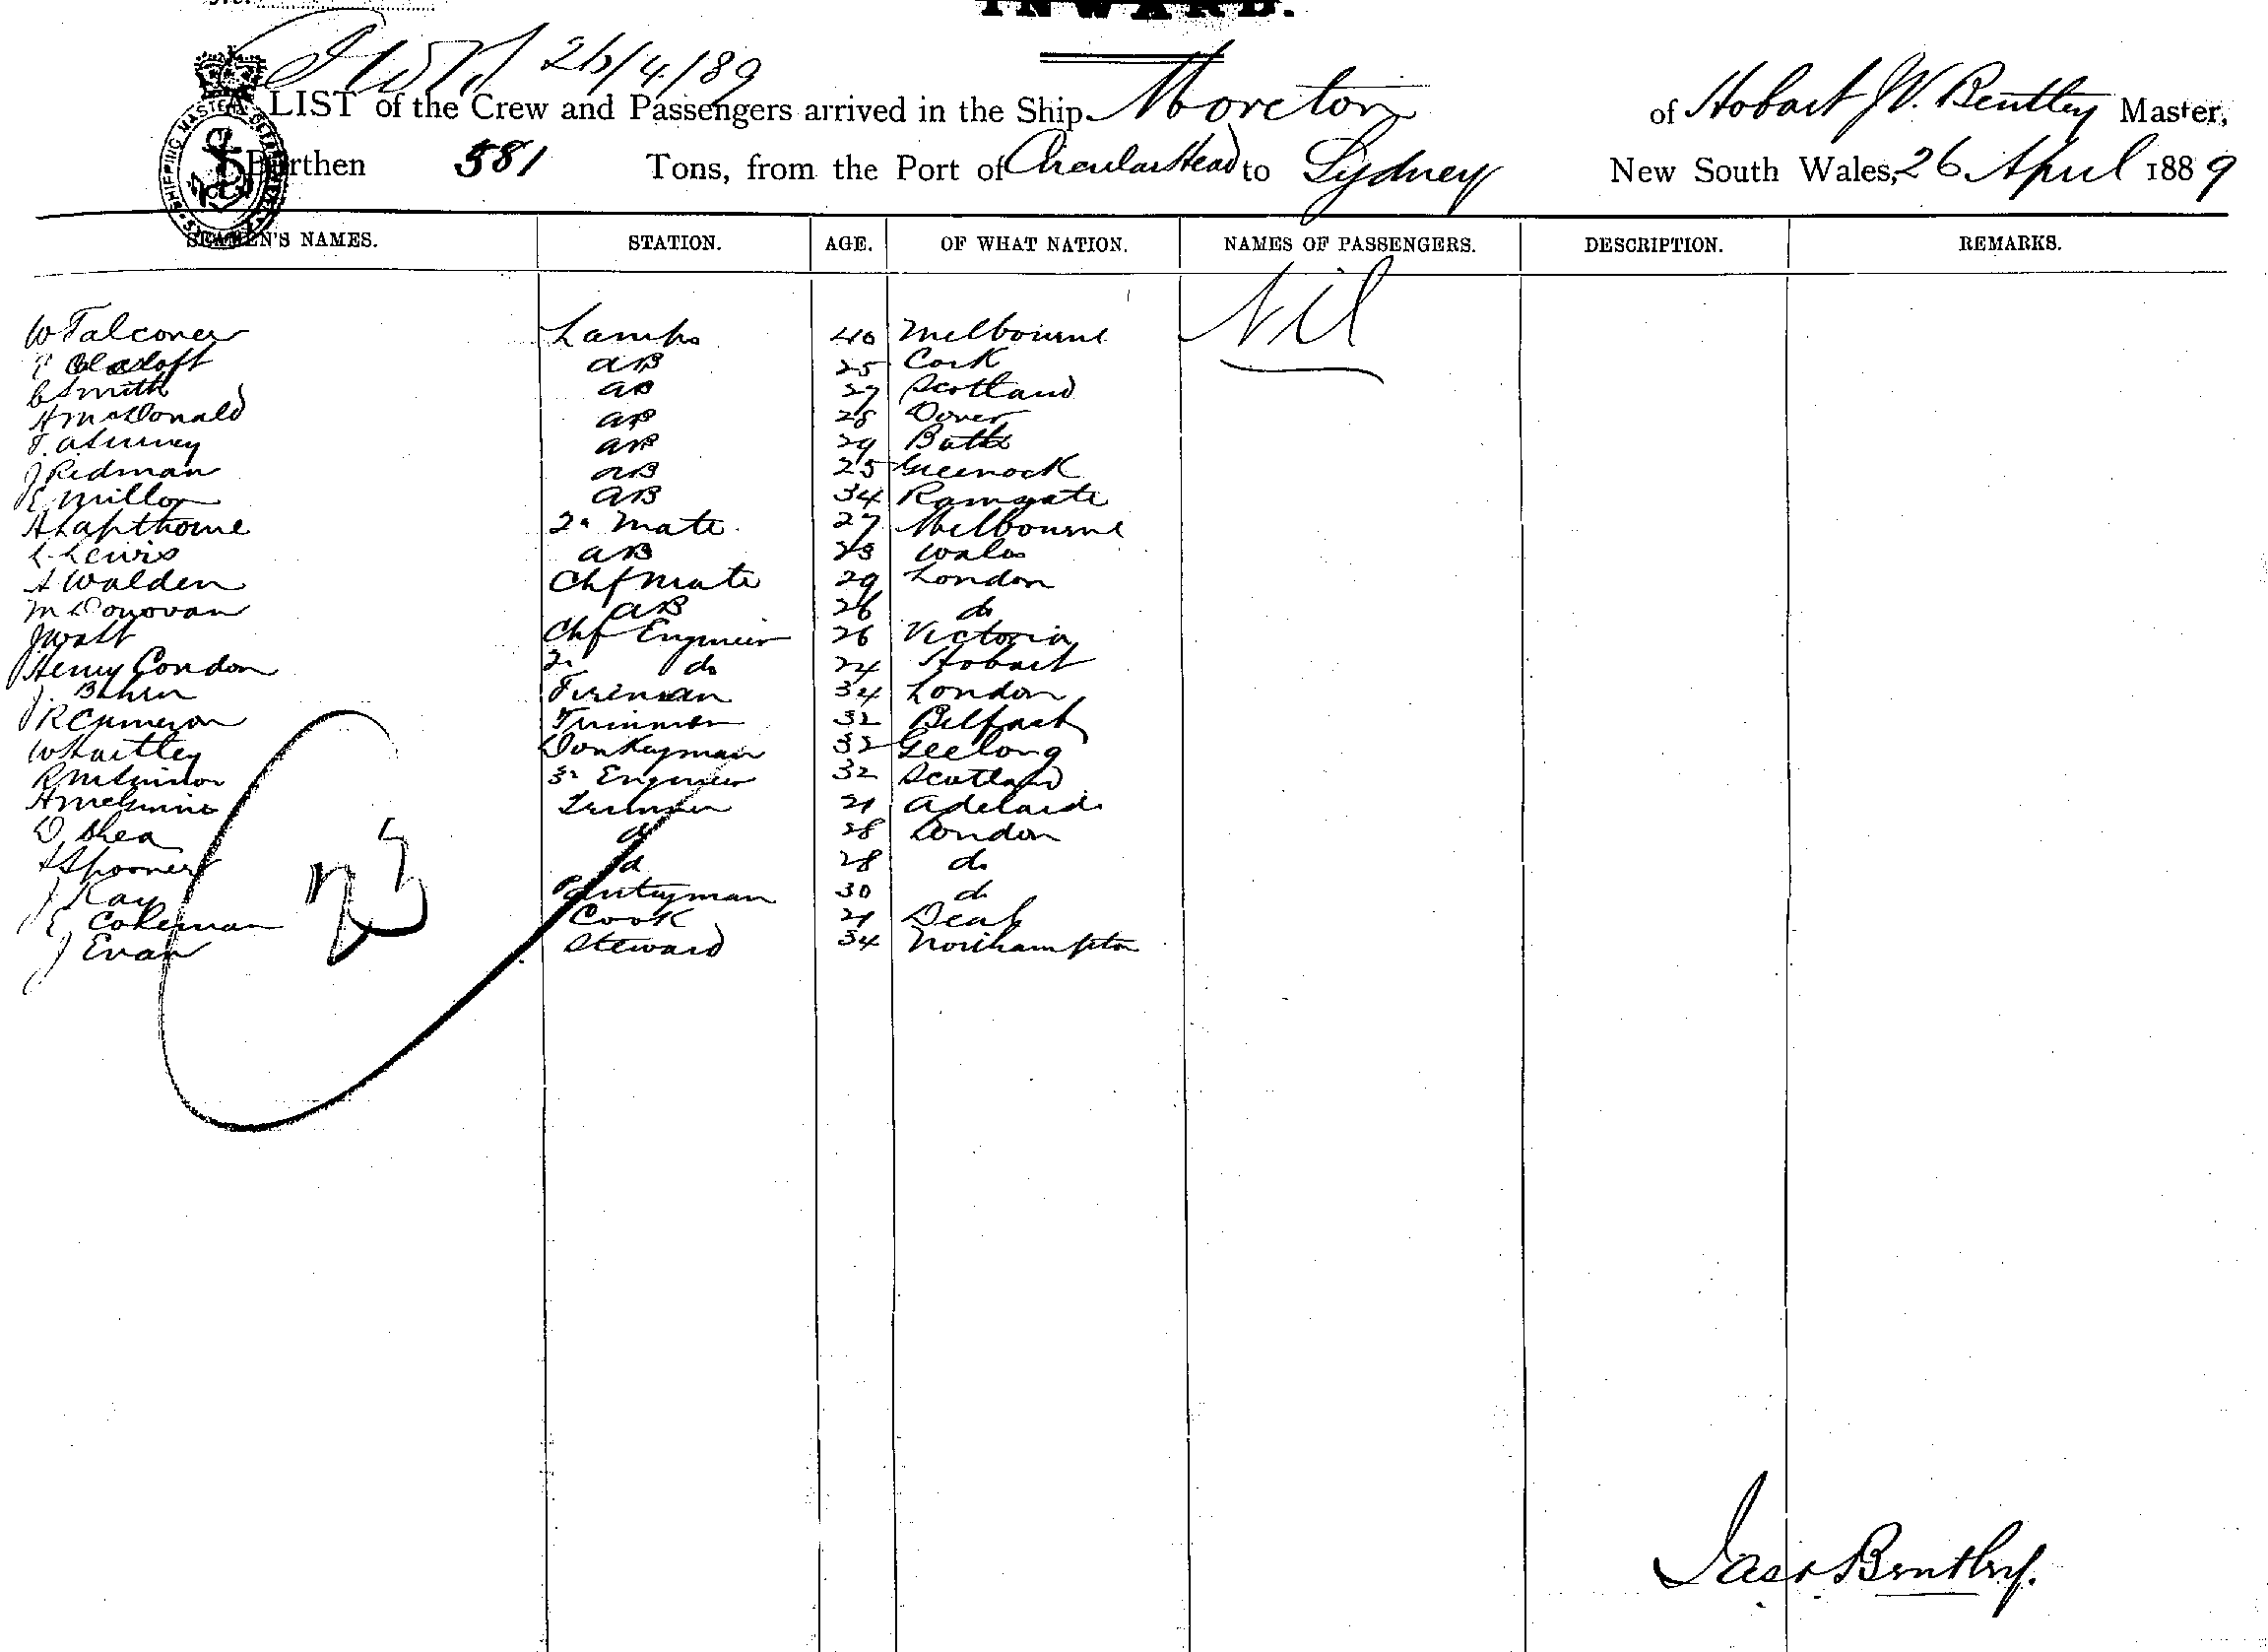 INWARD.
26/4/89
A LIST of the Crew and Passengers arrived in the Ship Moreton of Hobart J W. Bentley Master,
Burthen 581 Tons, from the Port of Circular Head to Sydney New South Wales, 26 April 1889
SEAMEN'S NAMES. STATION. AGE. OF WHAT NATION. NAMES OF PASSENGERS. DESCRIPTION. REMARKS.
Nil
W Falconer Lamps 40 Melbourne
AB 25 Cork
C Smith AB 27 Scotland
H McDonald AB 28 Dover
AB 29
J Redman AB 25 Greenock
E. Millor AB 34 Ramsgate
A Lapthorne 2n Mate 27 Melbourne
L. Lewis AB 23 Wales
A Walden Chf Mate 29 London
M Donovan AB 26 do
J Watt Chf Engineer 26 Victoria
Henry Condon 2n do 24 Hobart
J. Fireman 34 London
R Cameron Trimmer 32 Belfast
W Hartley Donkeyman 32 Geelong
R McKinnon 3r Engineer 32 Scotland
Trimmer 21 Adelaide
D. Shea d 28 London
Spooner d 28 do
J Kay Pantryman 30 d
E Cokeman Cook 21 Deal
J Evan Steward 34 Northampton
23
Jas Bentley.